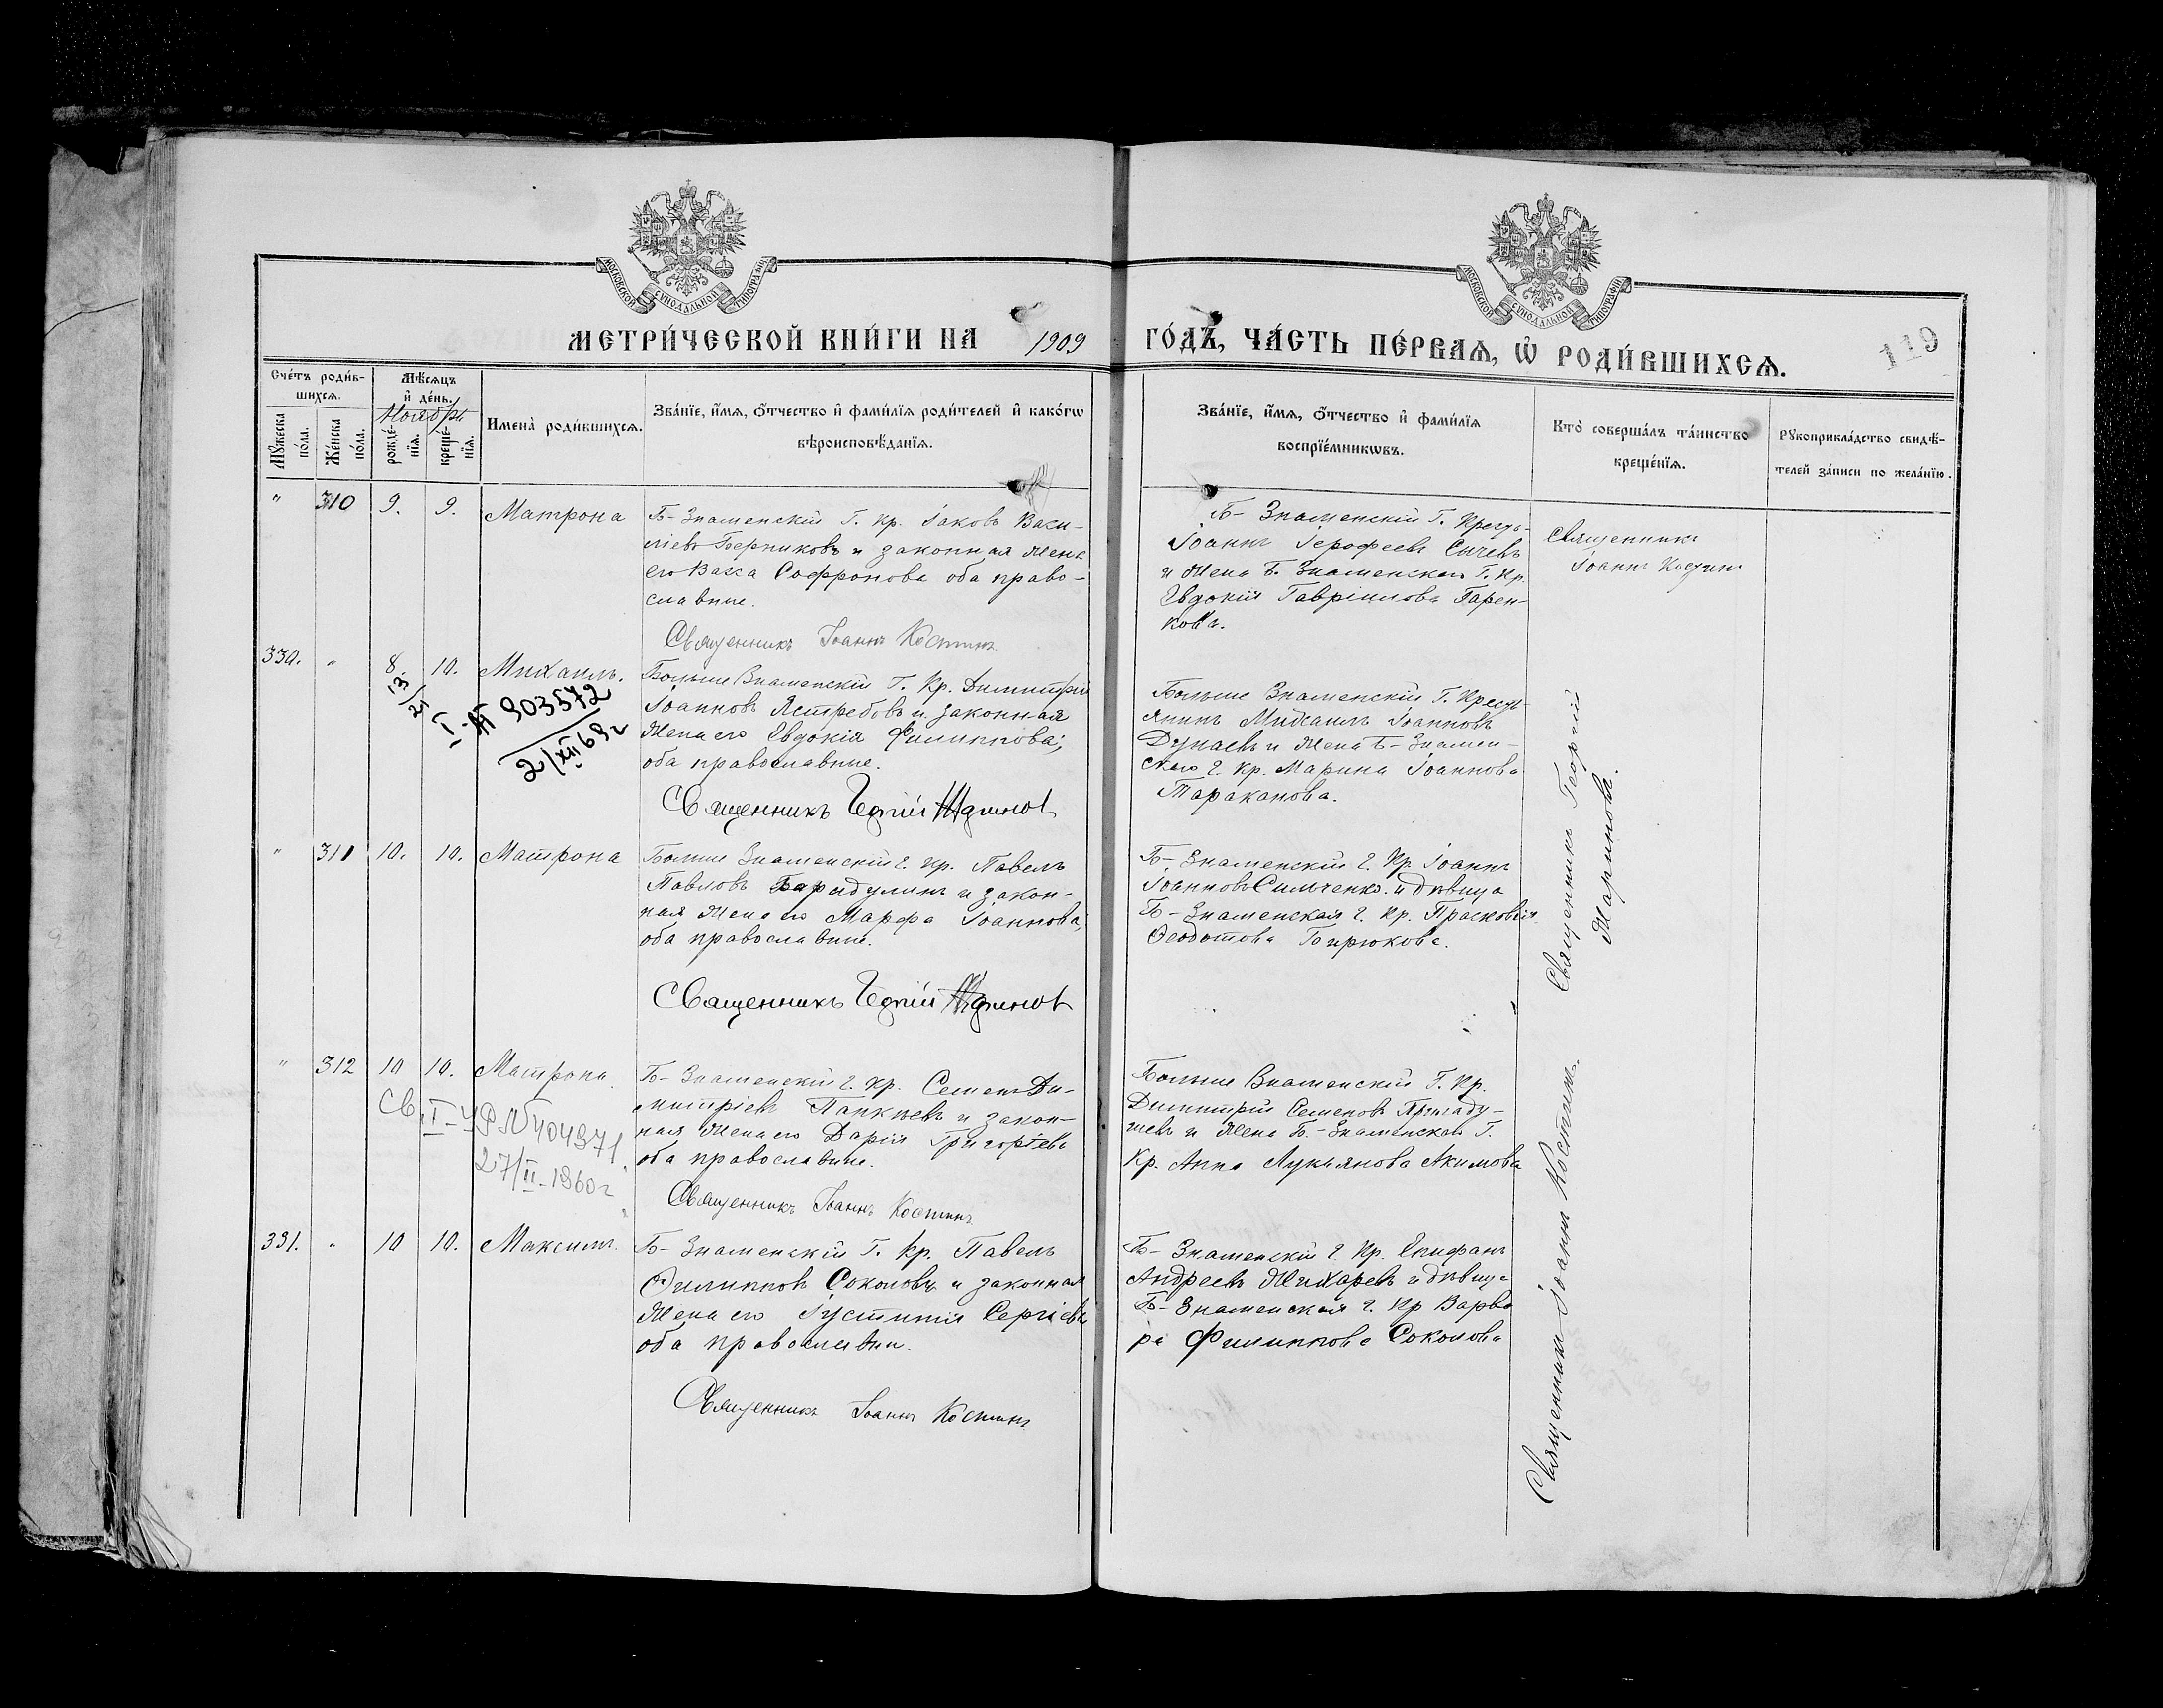 МОСКОВСКОЙ СѴНОДАЛЬНОЙ ТИПОГРАФІИ
МОСКОВСКОЙ СѴНОДАЛЬНОЙ ТИПОГРАФІИ
МЕТРИ́ЧЕСКОЙ КНИ́ГИ НА 1909
ГО́ДЪ, ЧА́СТЬ ПЕ́РВАѦ, Ѡ҆ РОДИ́ВШИХСѦ.
119
Сче́тъ роди́в-
шихсѧ.
Мꙋ́жеска
по́ла.
Же́нска
по́ла.
Мѣ́сѧцъ
и҆ де́нь.
Ноябрь
рожде́-
нїѧ.
креще́-
нїѧ.
Имена̀ роди́вшихсѧ.
Зва́нїе, и҆́мѧ, ѻ҆́тчество и҆ фами́лїѧ роди́телей и҆ како́гѡ
вѣроисповѣ́данїѧ.
Зва́нїе, и҆́мѧ, ѻ҆́тчество и҆ фами́лїѧ
воспрїе́мникѡвъ.
Кто̀ соверша́лъ та́инство
креще́нїѧ.
Рꙋкоприкла́дство свидѣ́-
телей за́писи по жела́нїю.
" 310 9. 9. Матрона
Б-Знаменскій Г. Кр. Іаковъ Васи-
ліевъ и законная жена
его Васса Софронова оба право-
славные.
Священникъ Іоаннъ Костинъ
Б- Знаменскій Г. Кресть-
Іоаннъ Іерофеевъ Сычевъ
и жена Б. Знаменскаго Г. Кр.
Евдокія Гавріилова Гарен-
кова.
Священникъ
Іоаннъ Костинъ
330. " 8 10. Михаилъ.
13/21
I-АГ 903572
2/XII 69 г
Больше Знаменскій Г. Кр. Димитрій
Іоанновъ Ястребовъ и законная
жена его Евдокія Филиппова;
оба православные.
Священникъ Георгій Мариновъ
Больше Знаменскій Г. Кресть-
янинъ Михаилъ Іоанновъ
Дунаевъ и жена Б-Знамен-
скаго Г. Кр. Марина Іоаннова
Тараканова.
Священникъ Георгій
Мариновъ.
" 311 10. 10. Матрона
Больше Знаменскій Г. Кр. Павелъ
Павловъ и закон-
ная жена его Марфа Іоаннова,
оба православные.
Священникъ Георгій Мариновъ
Б- Знаменскій Г. Кр. Іоаннъ
Іоанновъ Симченко и дѣвица
Б-Знаменская Г. Кр. Прасковія
Ѳеодотова Бирюкова.
" 312 10 10. Матрона.
Св. I-УР № 404371
27/II-1960 г
Б-Знаменскій Г. Кр. Семенъ Ди-
митріевъ и закон-
ная жена его Дарія Григоріева
оба православные.
Священникъ Іоаннъ Костинъ
Больше Знаменскій Г. Кр.
Димитрій Семеновъ
и жена Б.-Знаменскаго Г.
Кр. Анна Лукьянова Акимова
Священникъ Іоаннъ Костинъ.
331. " 10 10. Максимъ.
Б- Знаменскій Г. Кр. Павелъ
Филипповъ Соколовъ и законная
жена его Іустинія Сергіева
оба православны.
Священникъ Іоаннъ Костинъ
Б- Знаменскій Г. Кр. Епифанъ
Андреевъ Жихаревъ и дѣвица
Б-Знаменская Г. Кр Варва
ра Филиппова Соколова